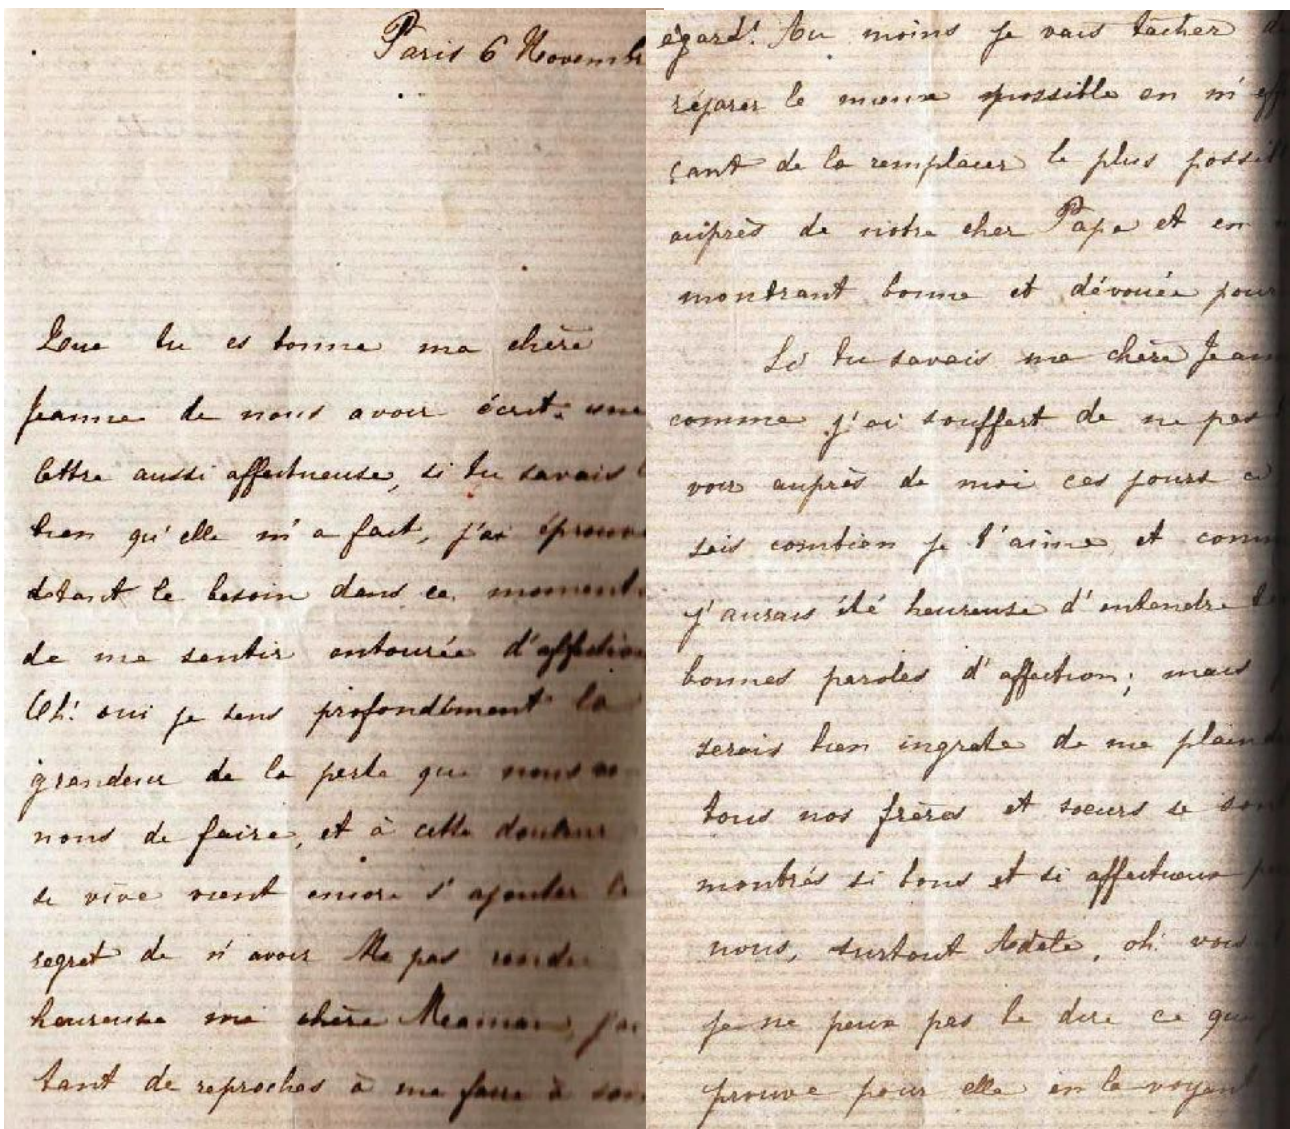 Paris 6 Novembr
Que tu es bonne ma chère
Jeanne de nous avoir écrit une
lettre aussi affectueuse, si tu savais l
bien qu'elle m'a fait, j'ai éprouv
de tant le besoin dans ce moment
de me sentir entourée d'affection
Oh! oui je sens profondément la
grandeur de la perte que nous ve
nons de faire, et à cette douleur
si vive vient encore s'ajouter le
regret de n'avoir pas rendu
heureuse ma chère Maman, j'ai
tant de reproches à me faire à son
égard! Au moins je vais tâcher de
réparer le mieux possible en m'eff
çant de la remplacer le plus possibl
auprès de notre cher Papa et en
montrant bonne et dévouée pour
Si tu savais ma chère Jean
comme j'ai souffert de ne pas
voir auprès de moi ces jours ci
sais combien je t'aime et comm
j'aurais été heureuse d'entendre te
bonnes paroles d'affection; mais
serais bien ingrate de me plaind
tous nos frères et soeurs se sont
montrés si bons et si affectueux p
nous, surtout Adèle, oh! vois
je ne peux pas te dire ce que
prouve pour elle en la voyant